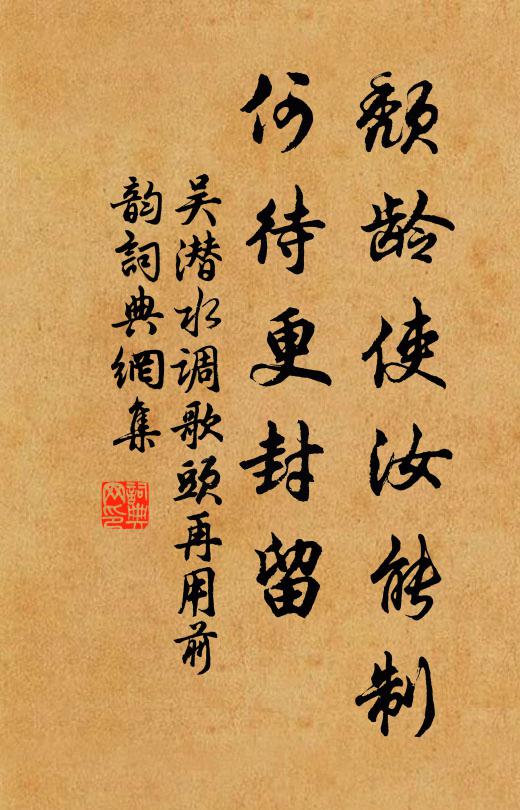 颓龄使汝能制
何待更封留
吴潜水调歌头再用前
韵詞典網集
詞典
网印